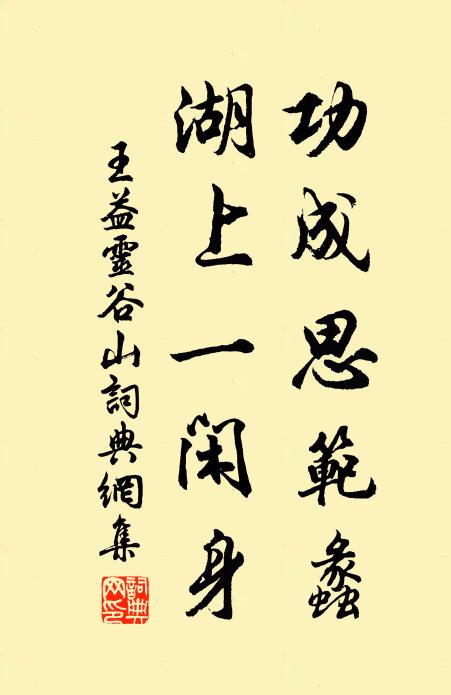 功成思範蠡
湖上一閑身
王益靈谷山詞典網集
詞典网印